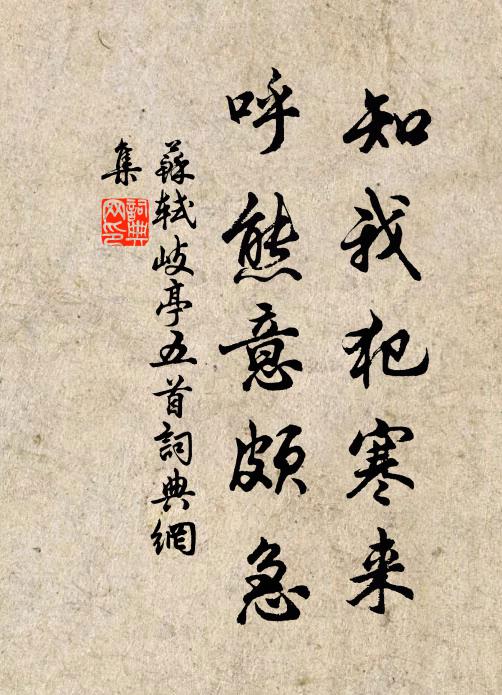 知我犯寒来
呼熊意頗急
蘇軾岐亭五首詞典網
集
詞典
网印